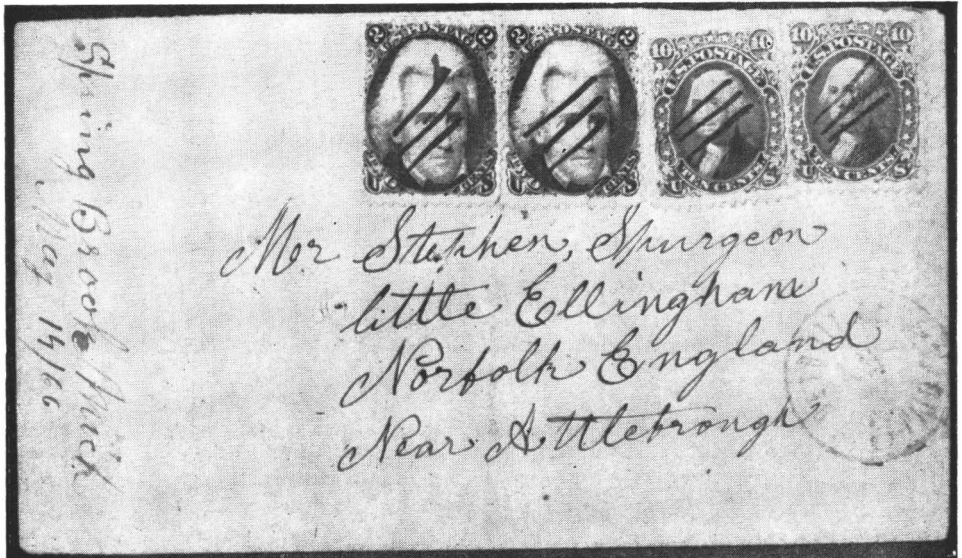 Spring Brook Mich
May 14/66
2 2
2 2
U S
U S
10 10
U.S. POSTAGE
TEN CENTS
U S
10 10
U.S. POSTAGE
TEN CENTS
U S
Mr Stephen, Spurgeon
little Ellingham
Norfolk England
Near Attlebrough